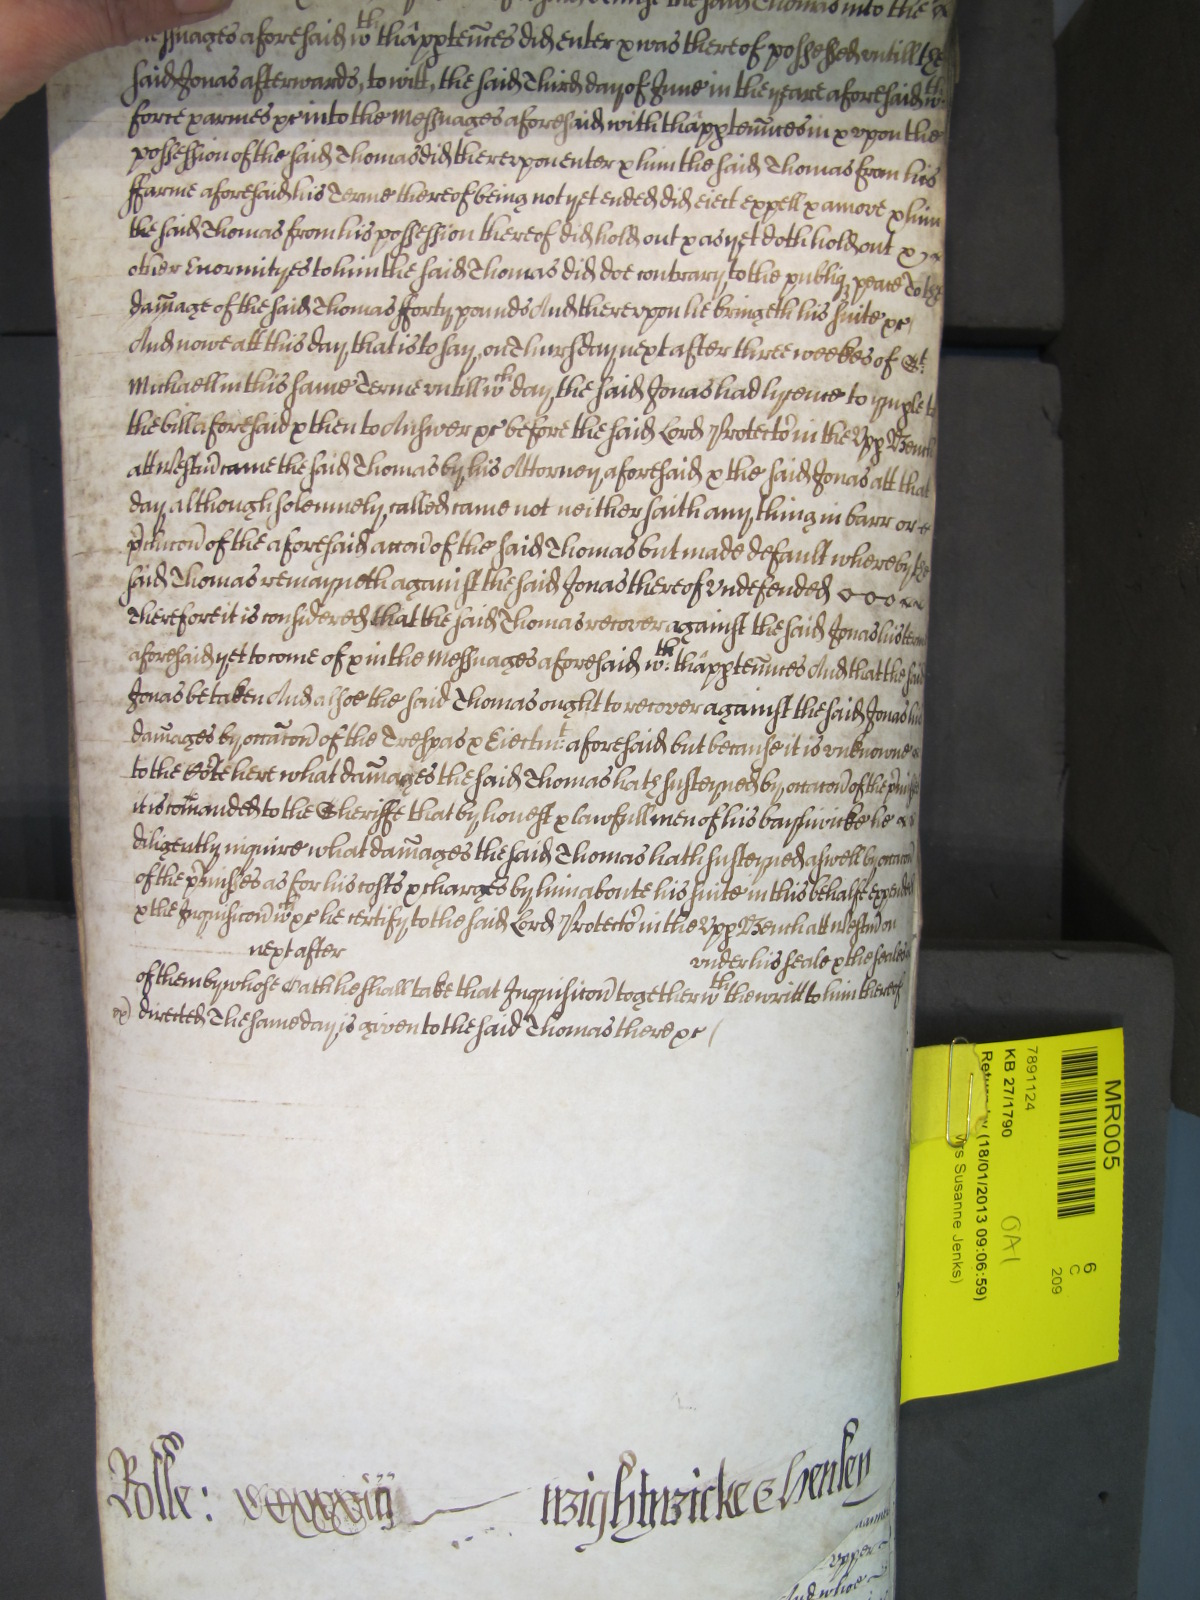 the said Thomas into the
messuages aforesaid wth thãpptenñces did enter & was thereof possessed untill the
said Jonas afterwards, to witt, the said Third day of June in the yeare aforesaid wth
force & armes &c into the Messuages aforesaid with thãpptenñces in & vpon the
possession of the said Thomas did therevpon enter & him the said Thomas from his
ffarme aforesaid his Terme thereof being not yet ended did eiect expell & amove & him
the said Thomas from his possession thereof did hold out & as yet doth hold out &
other Enormityes to him the said Thomas did doe contrary to the publiq peace To the
dam̃age of the said Thomas fforty pounds And therevpon he bringeth his suite &c/
And nowe att this day, that is to say, on Thursday next after three weekes of St
Michaell in this same Terme vntill wch day the said Jonas had lycence to imple to
the bill aforesaid & then to Answer &c before the said Lord Protector in the Vpp Bench
att Westm̃ came the said Thomas by his Attorney aforesaid & the said Jonas att that
day although solemnely called came not neither saith any thing in barr or
p̃clucoñ of the aforesaid accoñ of the said Thomas but made default whereby the
said Thomas remayneth against the said Jonas thereof vndefended
Therefore it is considered that the said Thomas recover against the said Jonas his terme
aforesaid yet to come of & in the Messuages aforesaid wth: thãpptenñces And that the said
Jonas be taken And alsoe the said Thomas ought to recover against the said Jonas his
dam̃ages by occac̃oñ of the Trespas & Eiectmt: aforesaid but because it is vnknowne
to the Cõte here what dam̃ages the said Thomas hath susteyned by occac̃oñ of the p̃misses
it is com̃anded to the Sheriffe that by honest & lawfull men of his baysiwicke he
diligently inquire what dam̃ages the said Thomas hath susteyned aswell by occac̃oñ
of the p̃misses as for his costs & charges by him aboute his suite in this behalfe expended
& the Inquisicoñ wch &c he certify to the said Lord Protector in the Vpp Bench att Westm̃ on
next after vnder his seale & the seales
of them by whose Oath he shall take that Inquisicoñ together wth the writt to him thereof
directed The same day is given to the said Thomas there &c /
Rolle: Wightwicke & Henley
upper
And whoe
MR005
7891124
KB 27/1790
Return by (18/01/2013 09:06:59)
Mrs Susanne Jenks)
OA1
6
C
209